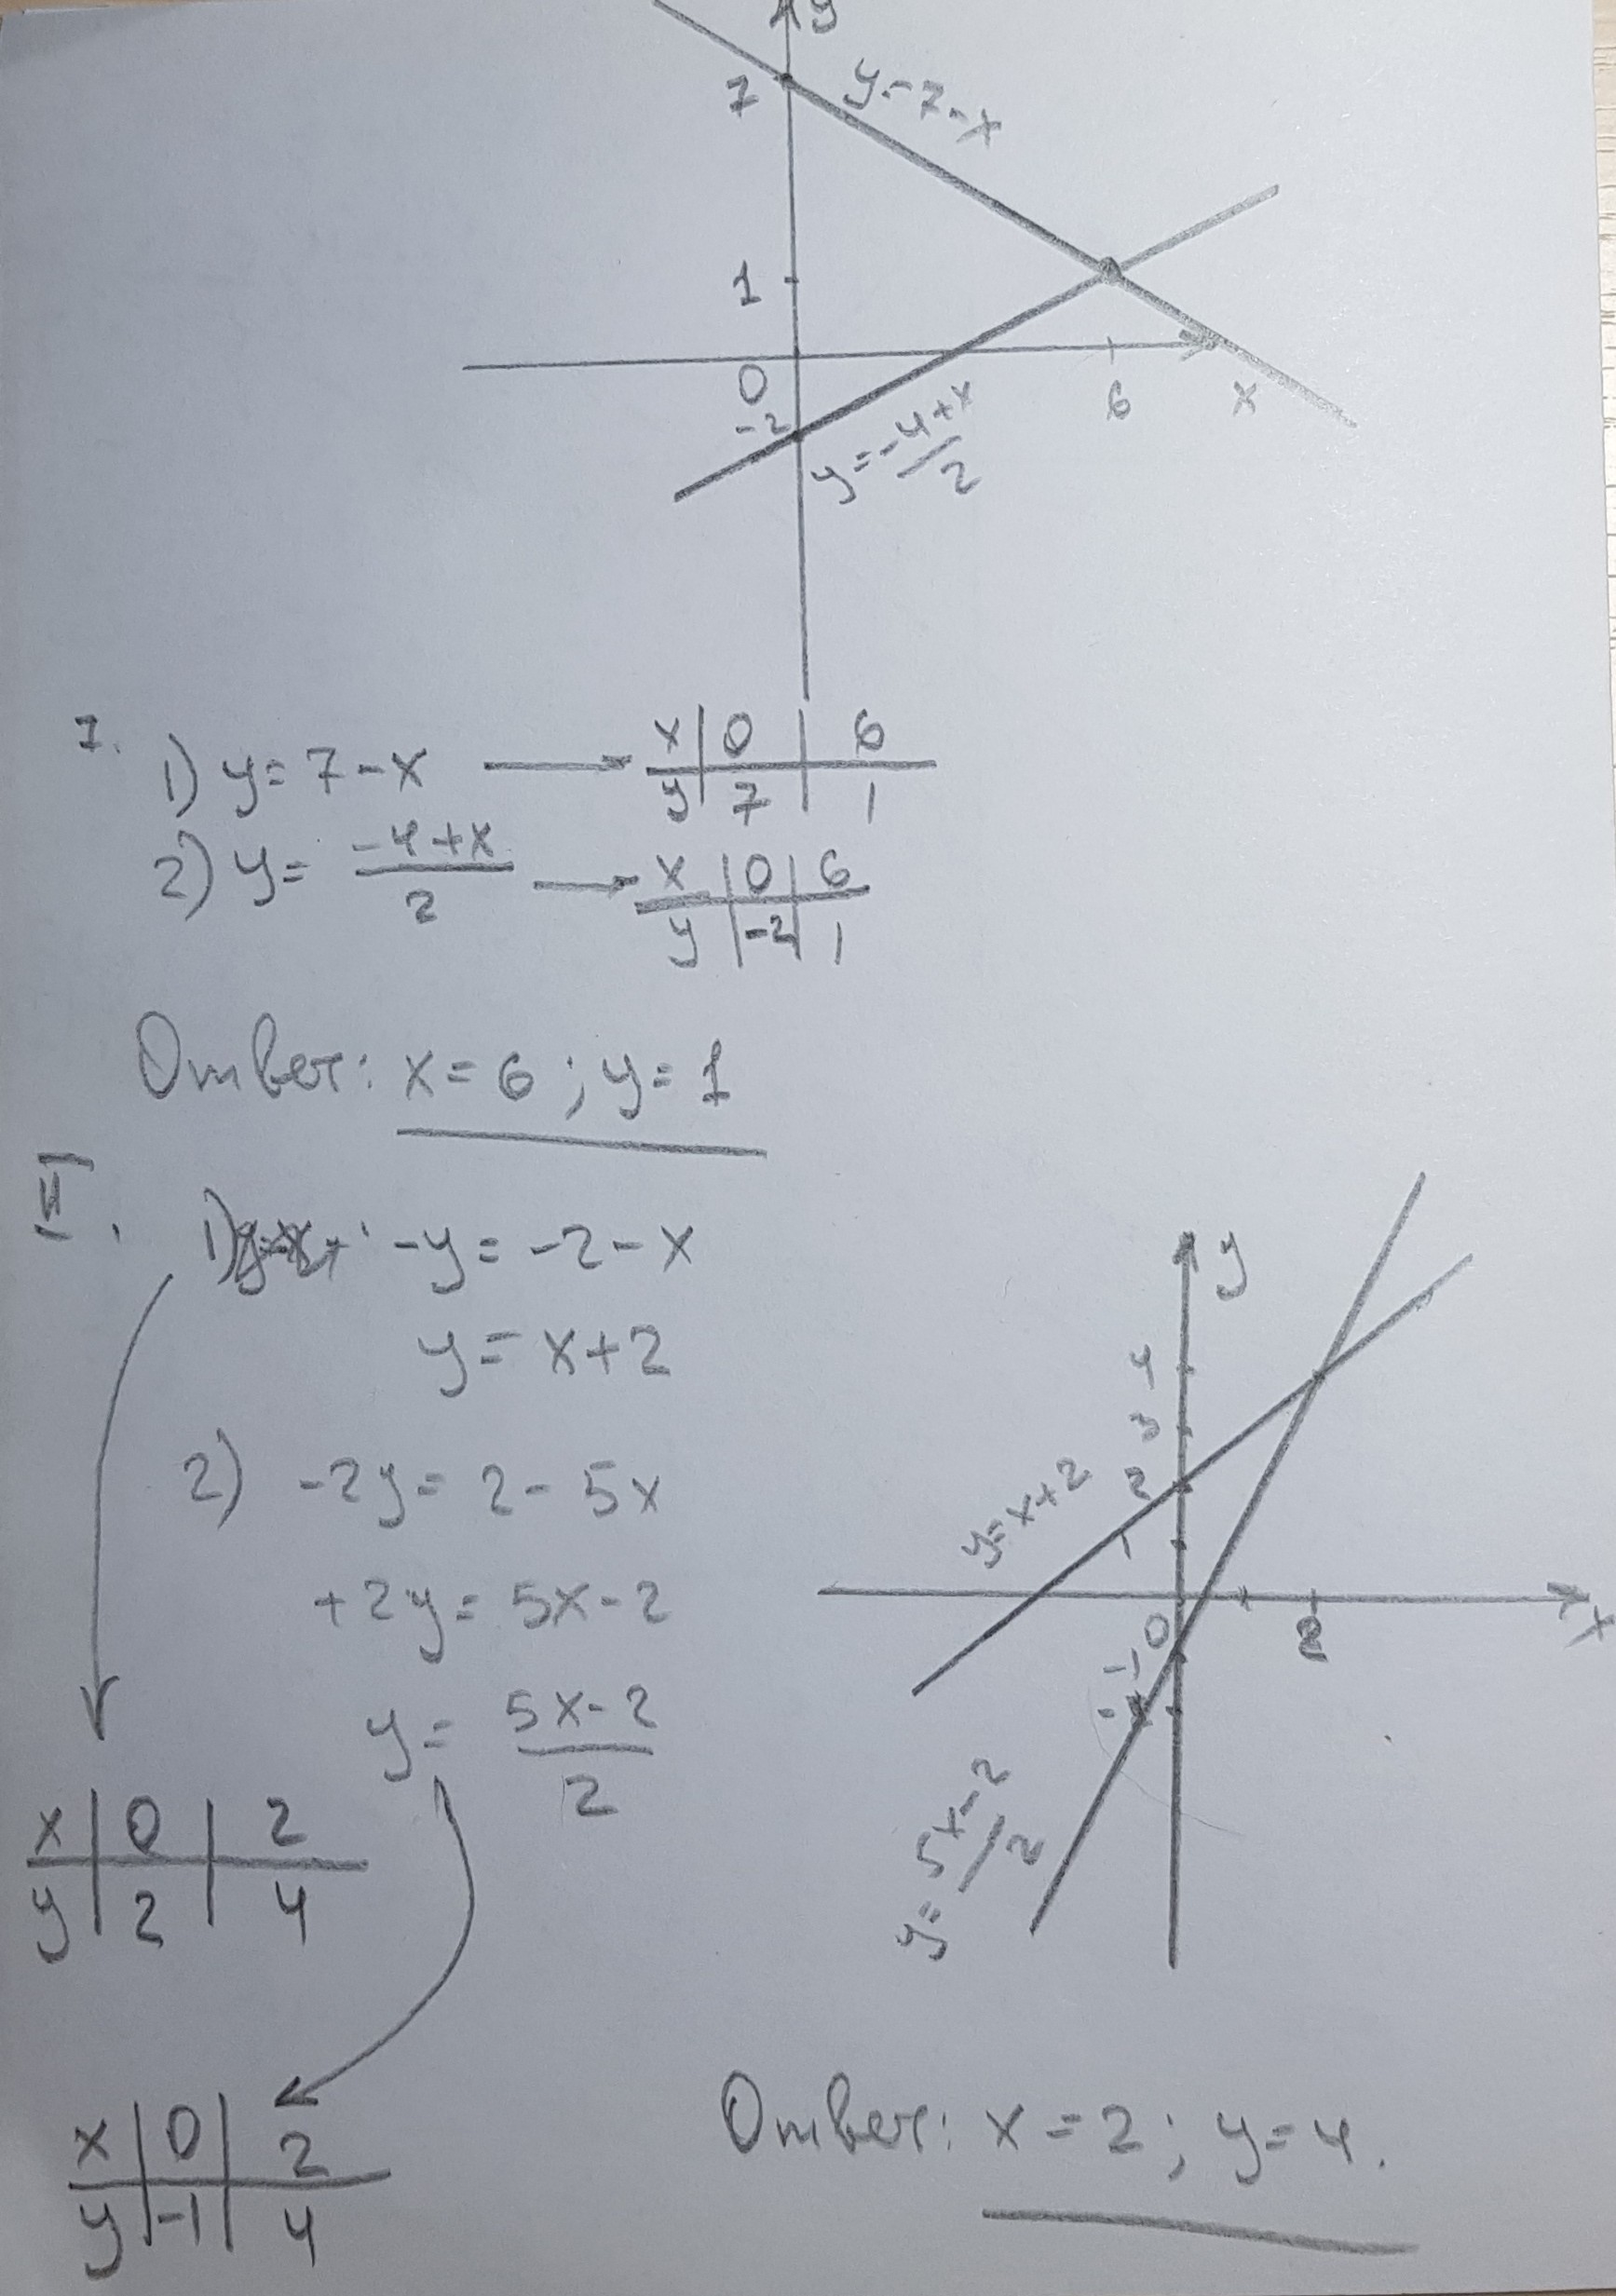 y
7
y=7-x
1
0
6
x
-2
y=-4+x/2
I.
1) y=7-x → x|0|6
y|7|1
2) y= -4+x/2 → x|0|6
y|-2|1
Ответ: x=6; y=1
II.
1) -y=-2-x
y=x+2
2) -2y=2-5x
+2y=5x-2
y= 5x-2/2
x|0|2
y|2|4
x|0|2
y|-1|4
y
4
3
2
1
y=x+2
0
2
x
-1
y=5x-2/2
Ответ: x=2; y=4.